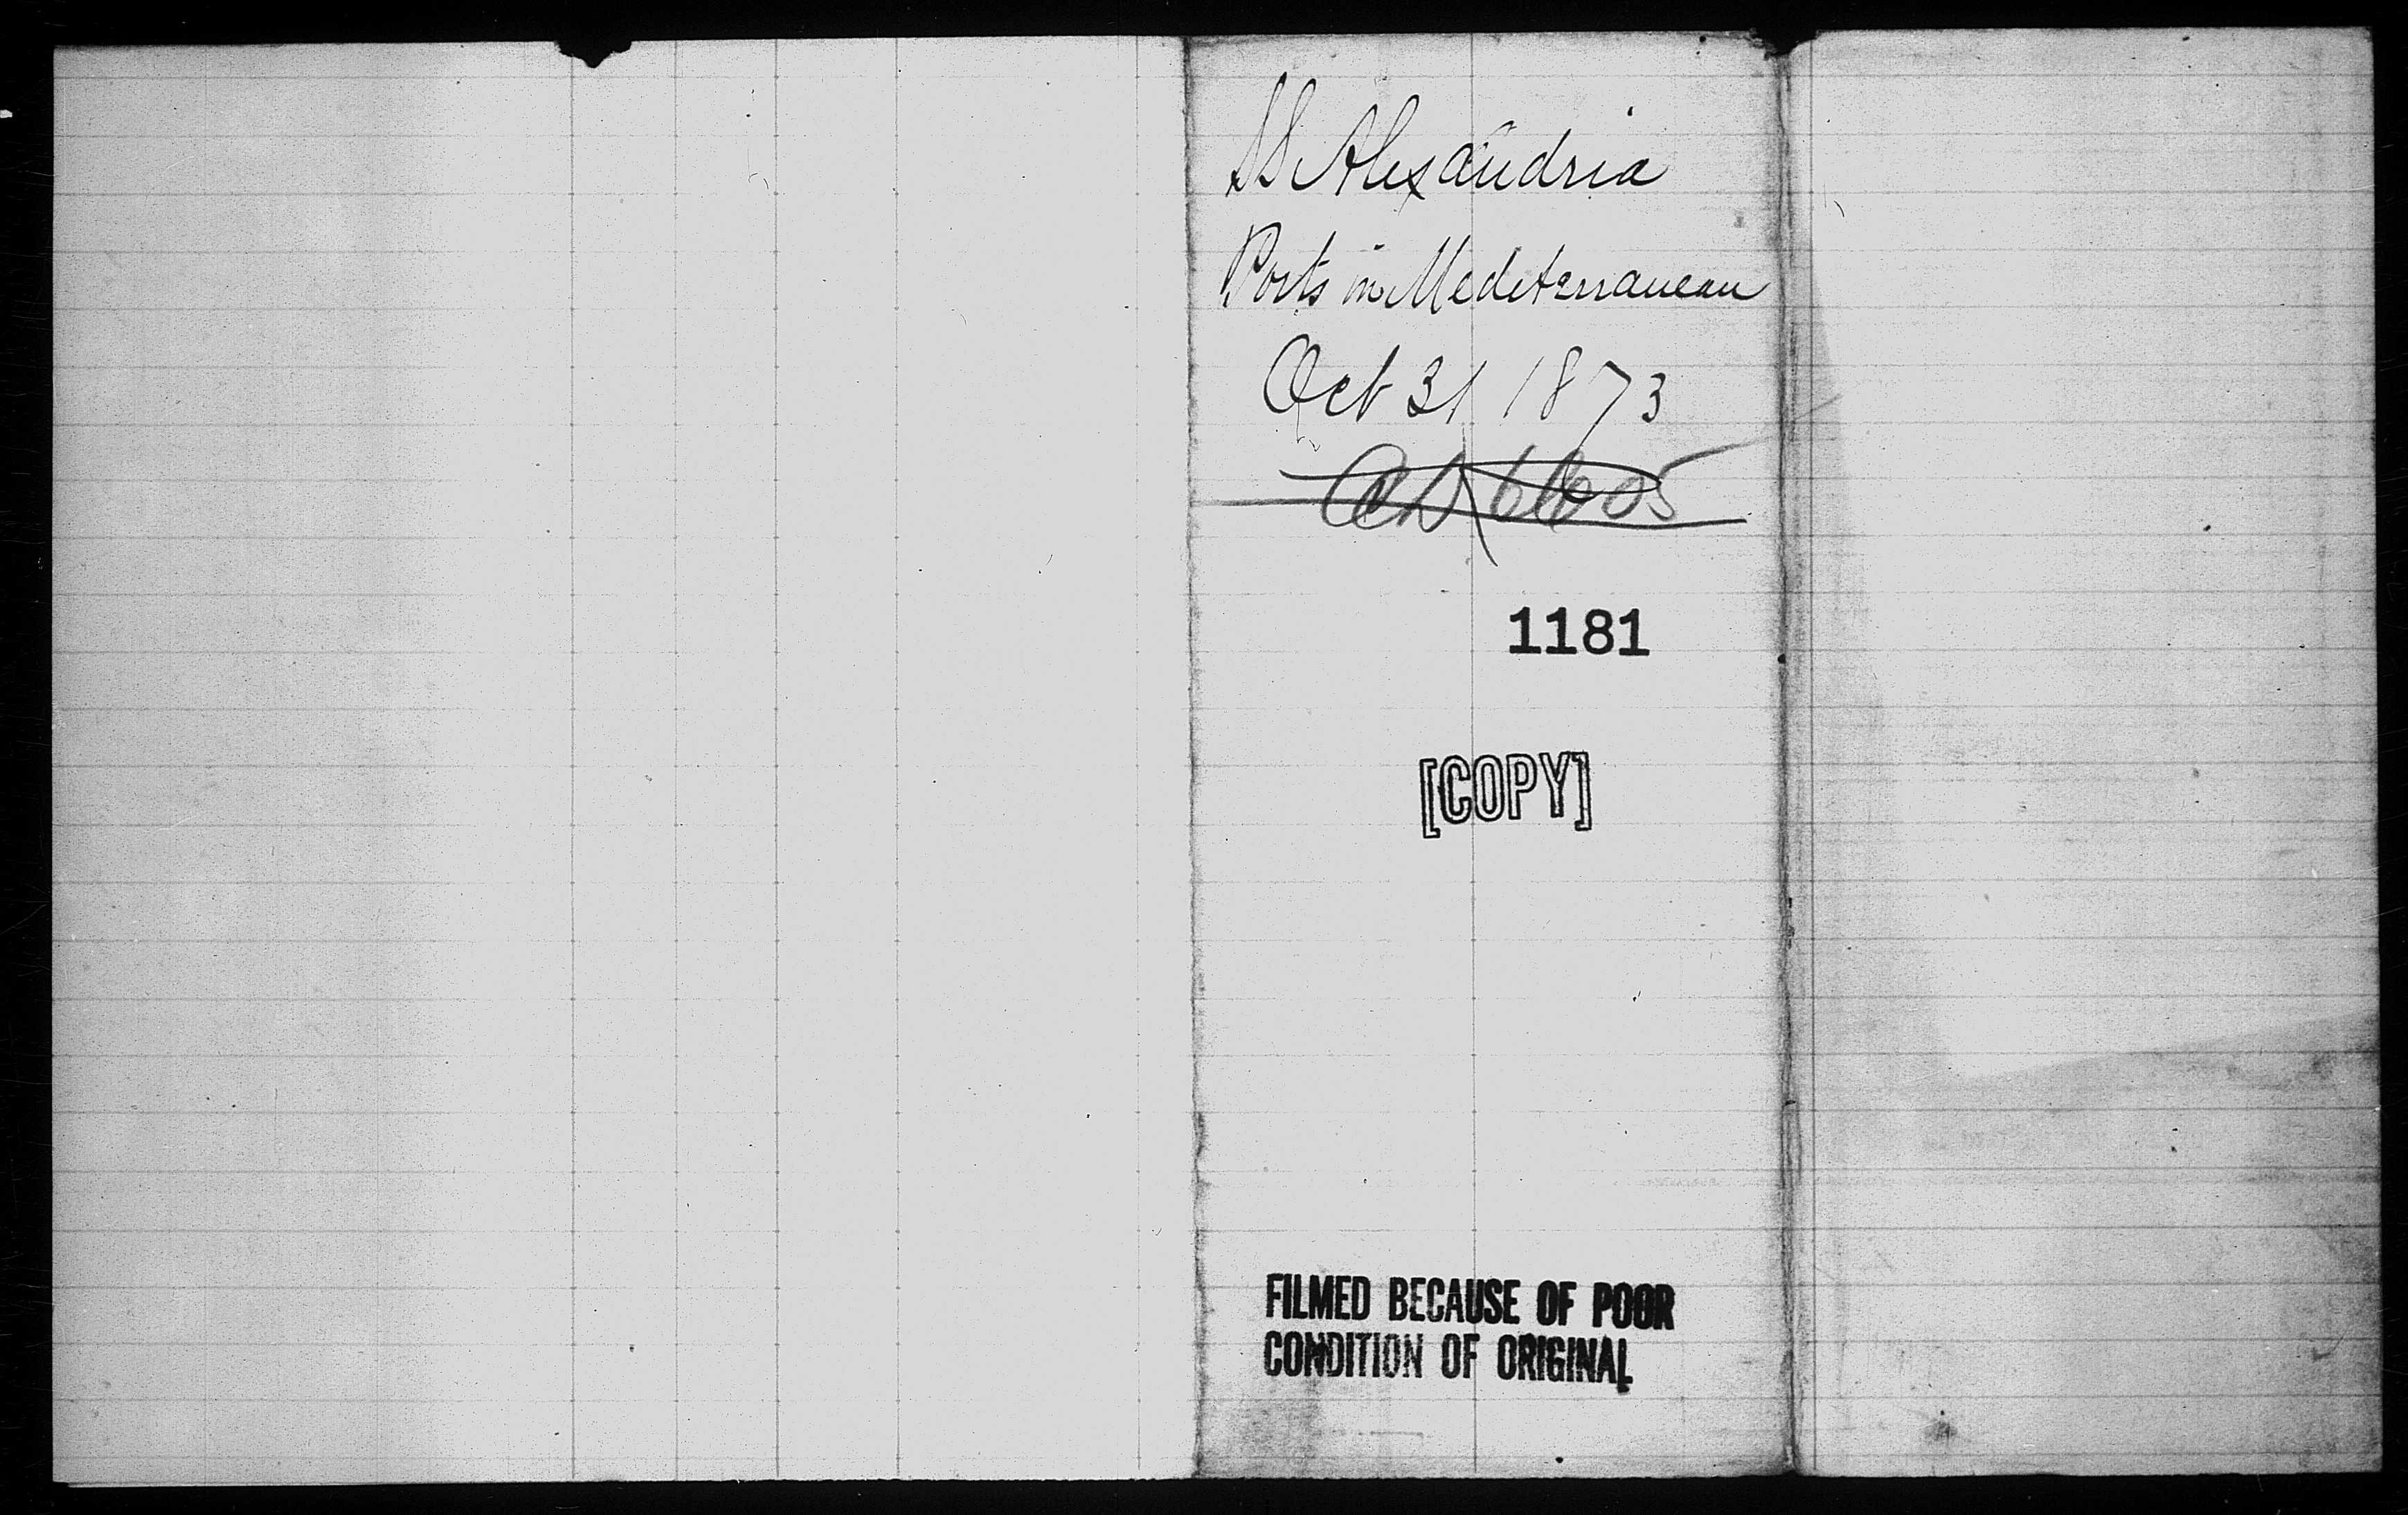 SS Alexandria
Ports in Mediterranean
Oct 31 1873
1181
[COPY]
FILMED BECAUSE OF POOR
CONDITION OF ORIGINAL